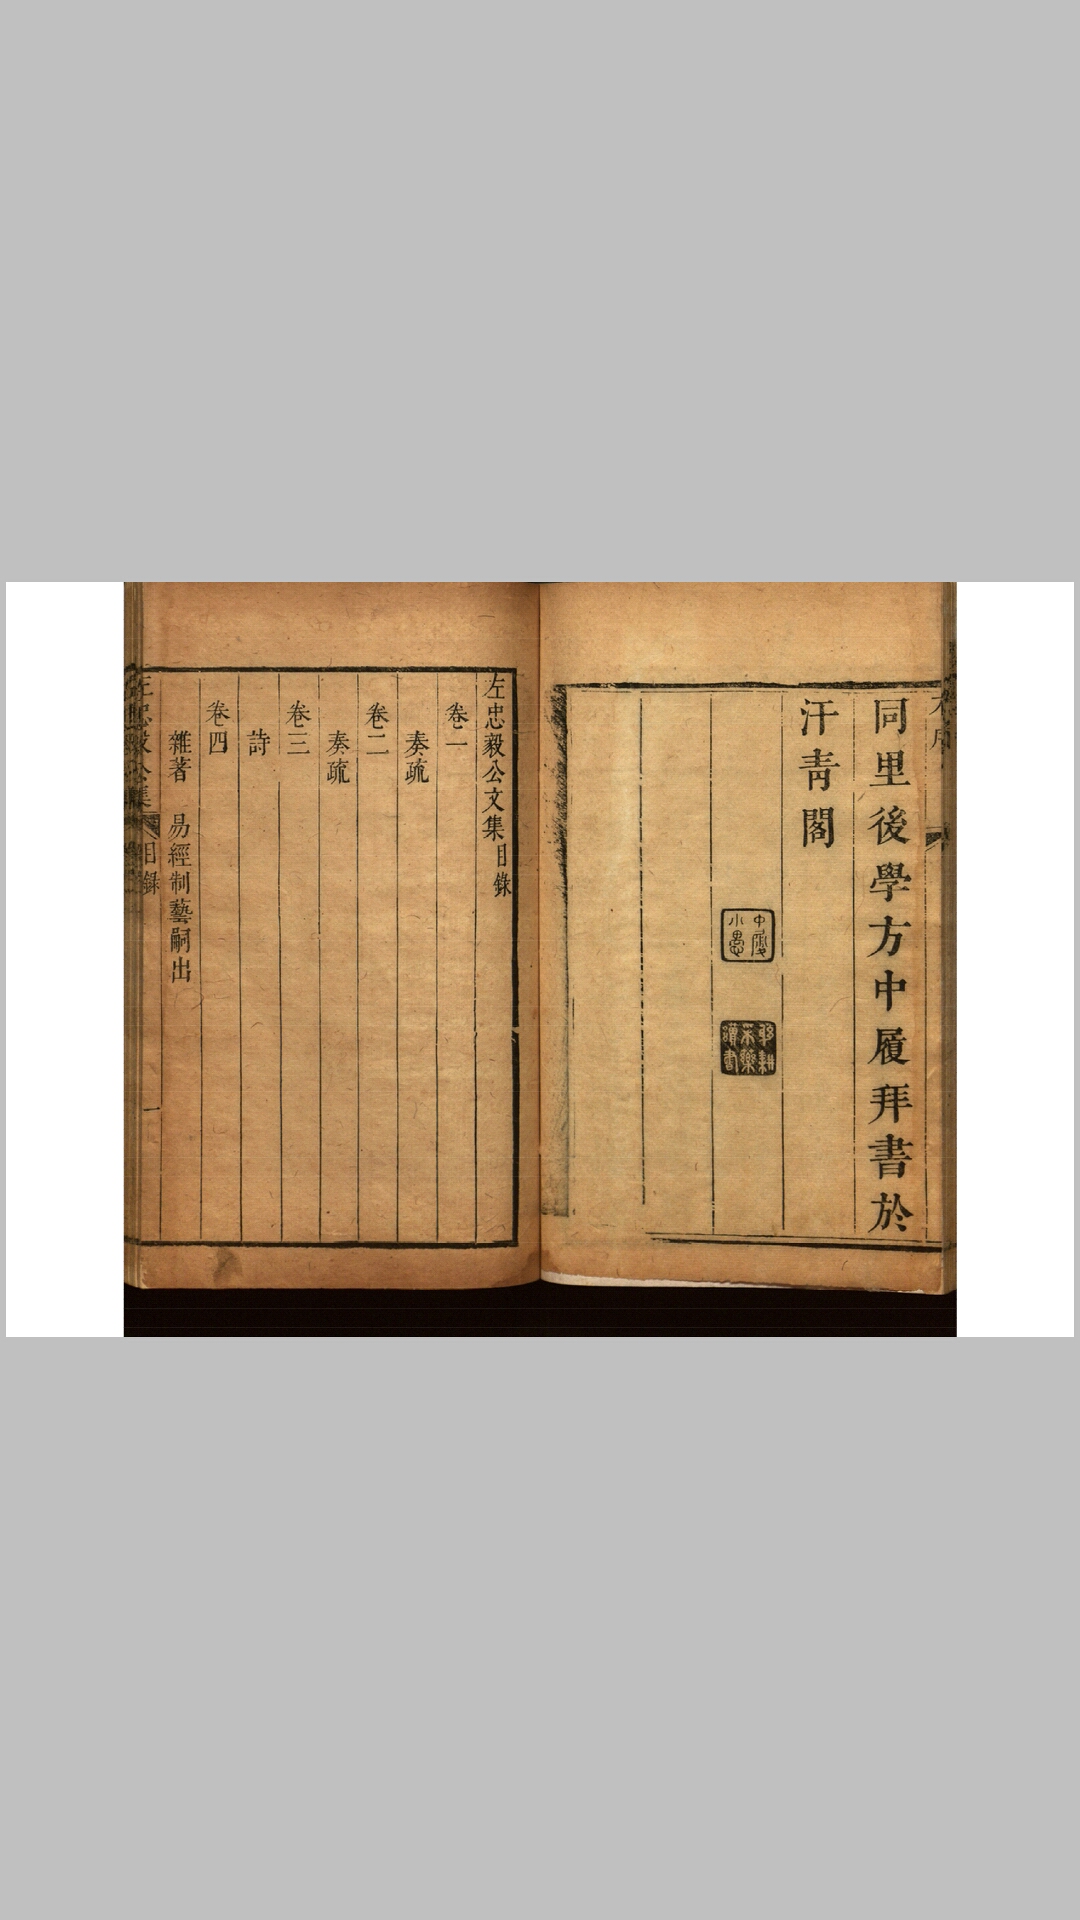 同里後學方中履拜書於
汗青閣
中履
小愚
躬耕
采藥
讀書
左忠毅公文集目錄
卷一
奏疏
卷二
奏疏
卷三
詩
卷四
雜著　易經制藝嗣出
左忠毅公集　目錄　一